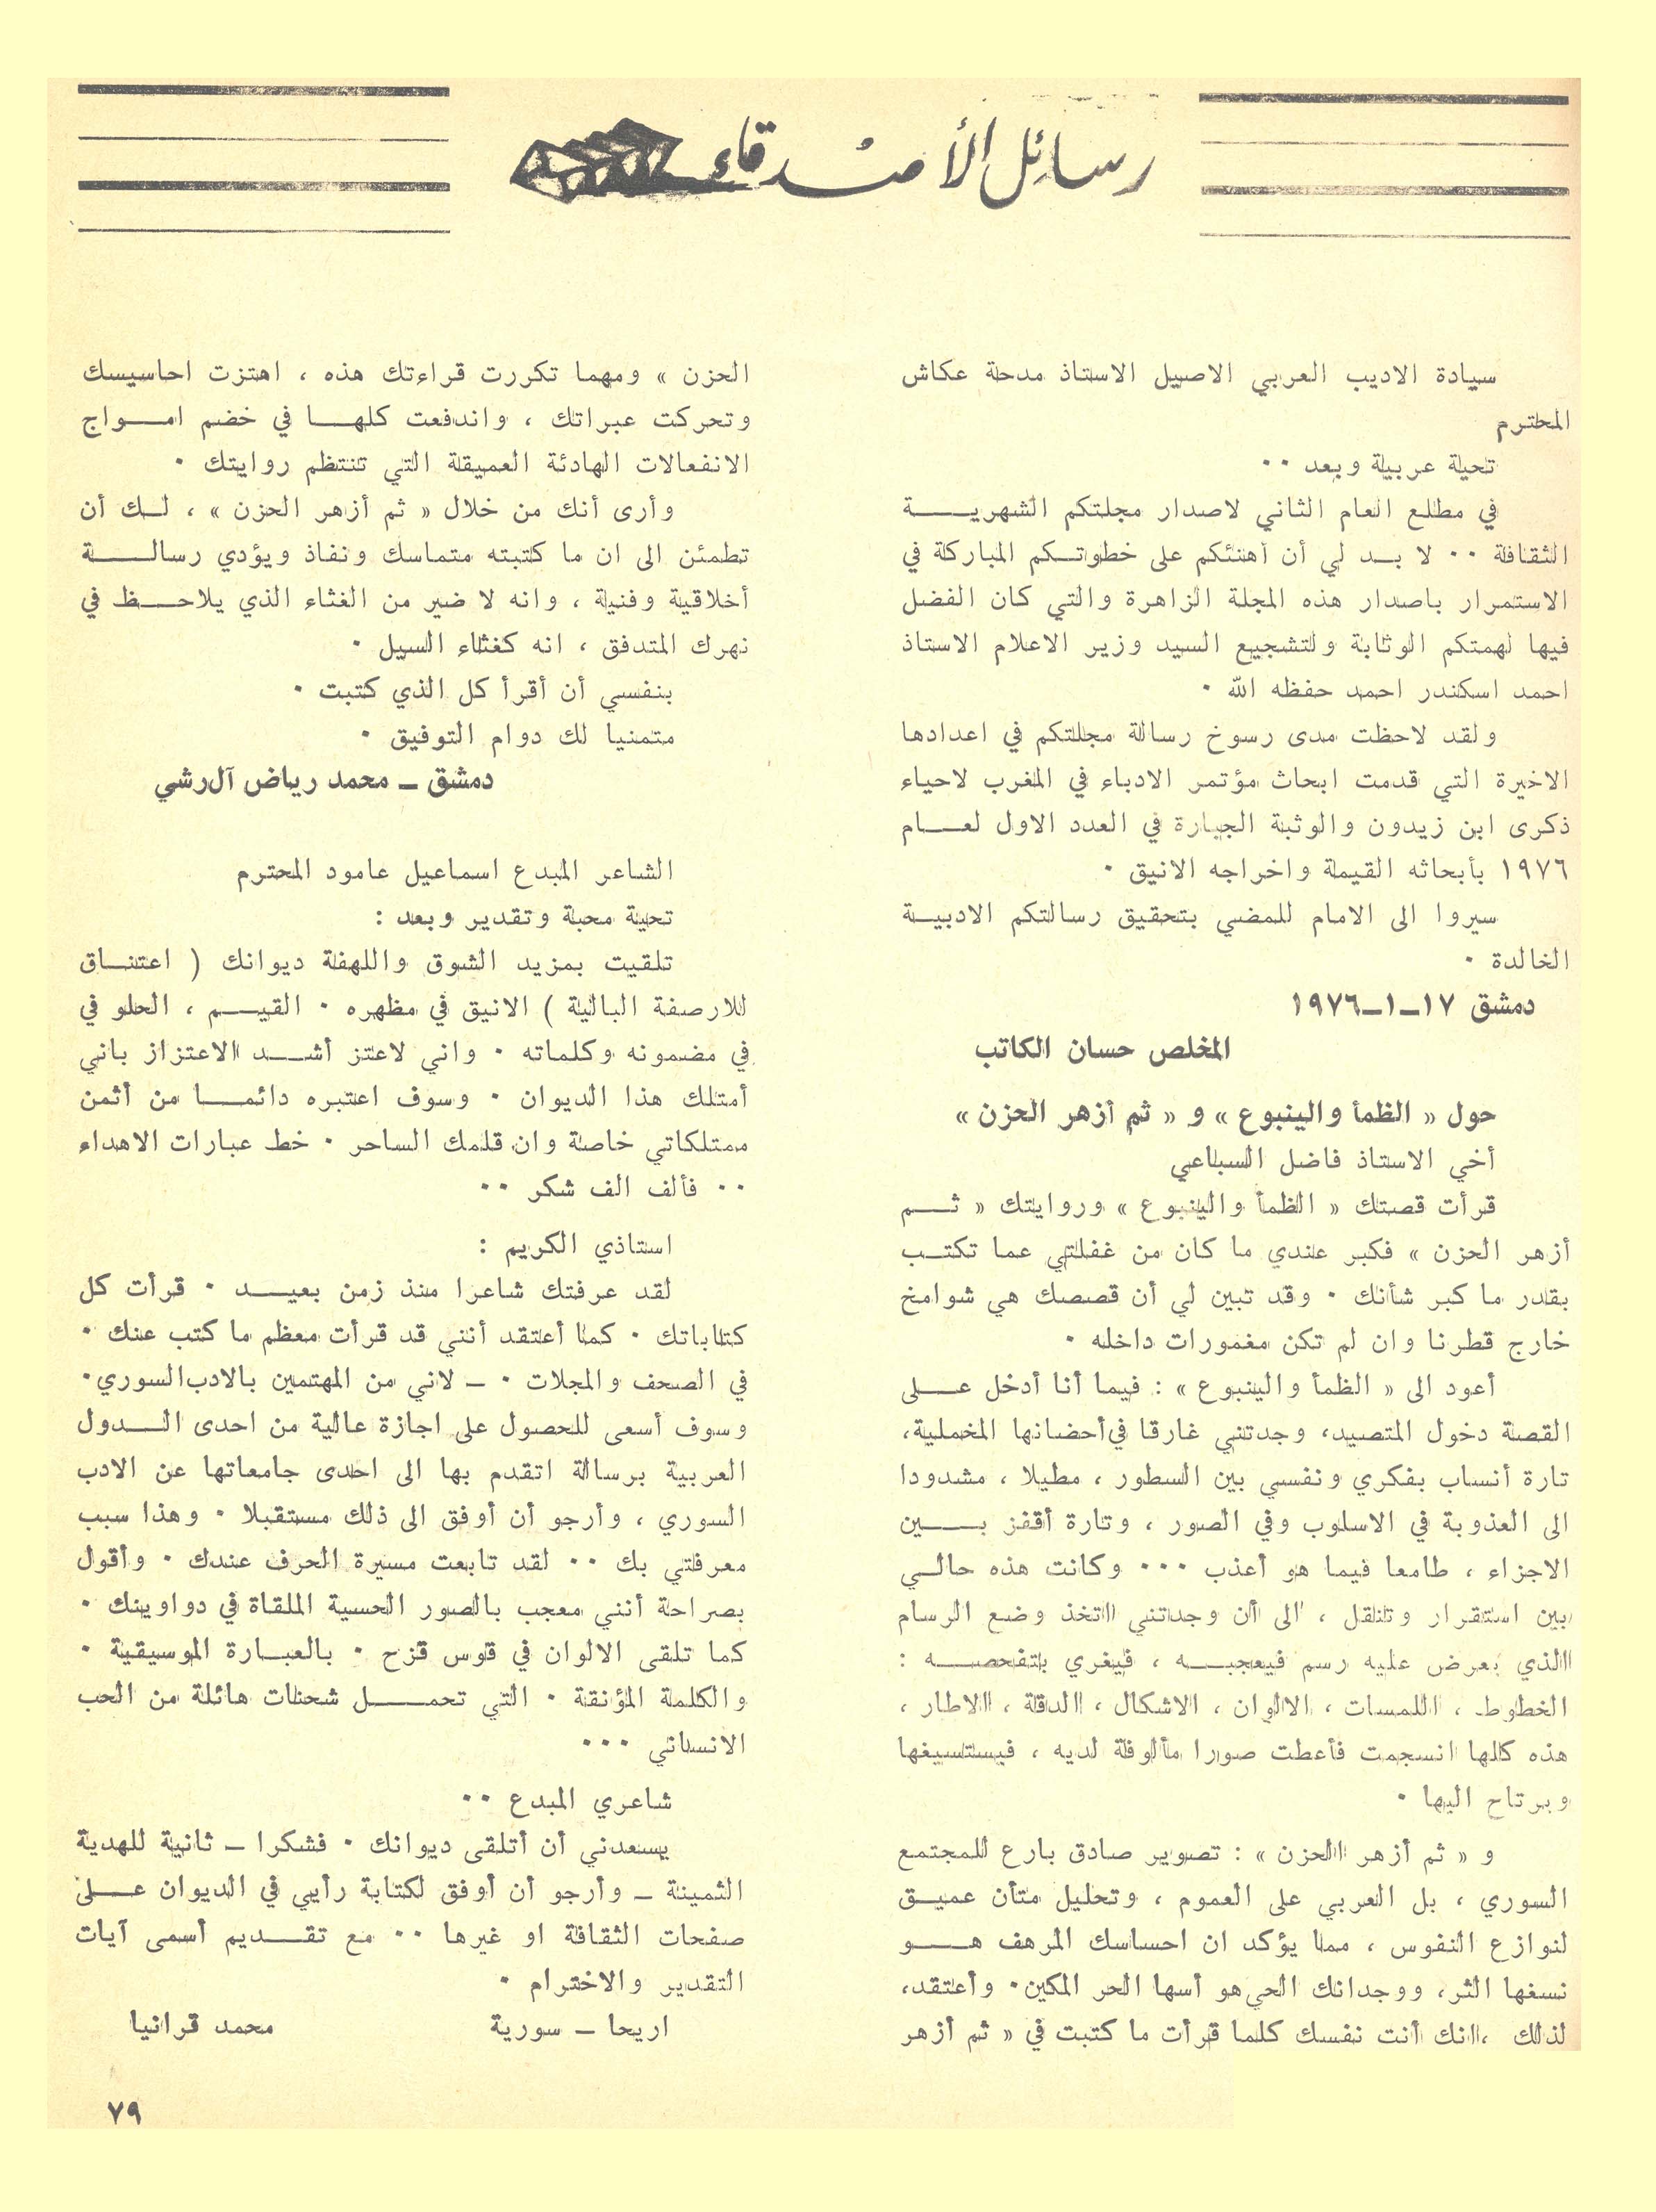 رسائل الأصدقاء
سيادة الاديب العربي الاصيل الاستاذ مدحة عكاش
المحترم
تحية عربية وبعد ··
في مطلع العام الثاني لاصدار مجلتكم الشهرية
الثقافة ·· لا بد لي أن أهنئكم على خطوتكم المباركة في
الاستمرار باصدار هذه المجلة الزاهرة والتي كان الفضل
فيها لهمتكم الوثابة ولتشجيع السيد وزير الاعلام الاستاذ
احمد اسكندر احمد حفظه الله ·
ولقد لاحظت مدى رسوخ رسالة مجلتكم في اعدادها
الاخيرة التي قدمت ابحاث مؤتمر الادباء في المغرب لاحياء
ذكرى ابن زيدون والوثبة الجبارة في العدد الاول لعام
١٩٧٦ بأبحاثه القيمة واخراجه الانيق ·
سيروا الى الامام للمضي بتحقيق رسالتكم الادبية
الخالدة ·
دمشق ١٧ـ١ـ١٩٧٦
المخلص حسان الكاتب
حول « الظمأ والينبوع » و « ثم أزهر الحزن »
أخي الاستاذ فاضل السباعي
قرأت قصتك « الظمأ والينبوع » وروايتك « ثم
أزهر الحزن » فكبر عندي ما كان من غفلتي عما تكتب
بقدر ما كبر شأنك · وقد تبين لي أن قصصك هي شوامخ
خارج قطرنا وان لم تكن مغمورات داخله ·
أعود الى « الظمأ والينبوع » : فيما أنا أدخل على
القصة دخول المتصيد، وجدتني غارقا في أحضانها المخملية،
تارة أنساب بفكري ونفسي بين السطور ، مطيلا ، مشدودا
الى العذوبة في الاسلوب وفي الصور ، وتارة أقفز بين
الاجزاء ، طامعا فيما هو أعذب ··· وكانت هذه حالي
بين استقرار وتنقل ، الى أن وجدتني اتخذ وضع الرسام
الذي يعرض عليه رسم فيعجبه ، فيغري بتفحصه :
الخطوط ، اللمسات ، الالوان ، الاشكال ، الدقة ، الاطار ،
هذه كلها انسجمت فأعطت صورا مألوفة لديه ، فيستسيغها
ويرتاح اليها ·
و « ثم أزهر الحزن » : تصوير صادق بارع للمجتمع
السوري ، بل العربي على العموم ، وتحليل متأن عميق
لنوازع النفوس ، مما يؤكد ان احساسك المرهف هو
نسغها الثر، ووجدانك الحي هو أسها الحر المكين· وأعتقد،
لذلك ، انك أنت نفسك كلما قرأت ما كتبت في « ثم أزهر
الحزن » ومهما تكررت قراءتك هذه ، اهتزت احاسيسك
وتحركت عبراتك ، واندفعت كلها في خضم امواج
الانفعالات الهادئة العميقة التي تنتظم روايتك ·
وأرى أنك من خلال « ثم أزهر الحزن » ، لك أن
تطمئن الى ان ما كتبته متماسك ونفاذ ويؤدي رسالة
أخلاقية وفنية ، وانه لا ضير من الغثاء الذي يلاحظ في
نهرك المتدفق ، انه كغثاء السيل ·
بنفسي أن أقرأ كل الذي كتبت ·
متمنيا لك دوام التوفيق ·
دمشق ـ محمد رياض آل رشي
الشاعر المبدع اسماعيل عامود المحترم
تحية محبة وتقدير وبعد :
تلقيت بمزيد الشوق واللهفة ديوانك ( اعتناق
للارصفة البالية ) الانيق في مظهره · القيم ، الحلو في
في مضمونه وكلماته · واني لاعتز أشد الاعتزاز باني
أمتلك هذا الديوان · وسوف اعتبره دائما من أثمن
ممتلكاتي خاصة وان قلمك الساحر · خط عبارات الاهداء
·· فألف الف شكر ··
استاذي الكريم :
لقد عرفتك شاعرا منذ زمن بعيد · قرأت كل
كتاباتك · كما أعتقد أنني قد قرأت معظم ما كتب عنك ·
في الصحف والمجلات · ـ لاني من المهتمين بالادب السوري·
وسوف أسعى للحصول على اجازة عالية من احدى الدول
العربية برسالة اتقدم بها الى احدى جامعاتها عن الادب
السوري ، وأرجو أن أوفق الى ذلك مستقبلا · وهذا سبب
معرفتي بك ·· لقد تابعت مسيرة الحرف عندك · وأقول
بصراحة أنني معجب بالصور الحسية الملقاة في دواوينك ·
كما تلقى الالوان في قوس قزح · بالعبارة الموسيقية ·
والكلمة المؤنقة · التي تحمل شحنات هائلة من الحب
الانساني ···
شاعري المبدع ··
يسعدني أن أتلقى ديوانك · فشكرا ـ ثانية للهدية
الثمينة ـ وأرجو أن أوفق لكتابة رأيي في الديوان على
صفحات الثقافة او غيرها ·· مع تقديم أسمى آيات
التقدير والاحترام ·
اريحا ـ سورية محمد قرانيا
٧٩